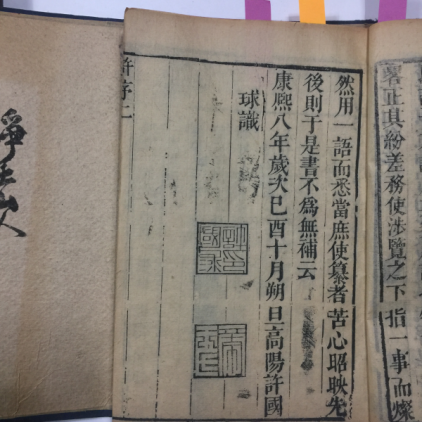 畧正其紛差務使涉覽之下指一事而燦
然用一語而悉當庶使纂者苦心昭映先
後則于是書不爲無補云
康熙八年歲次己酉十月朔日高陽許國
球識
許印國球
許序二
山人